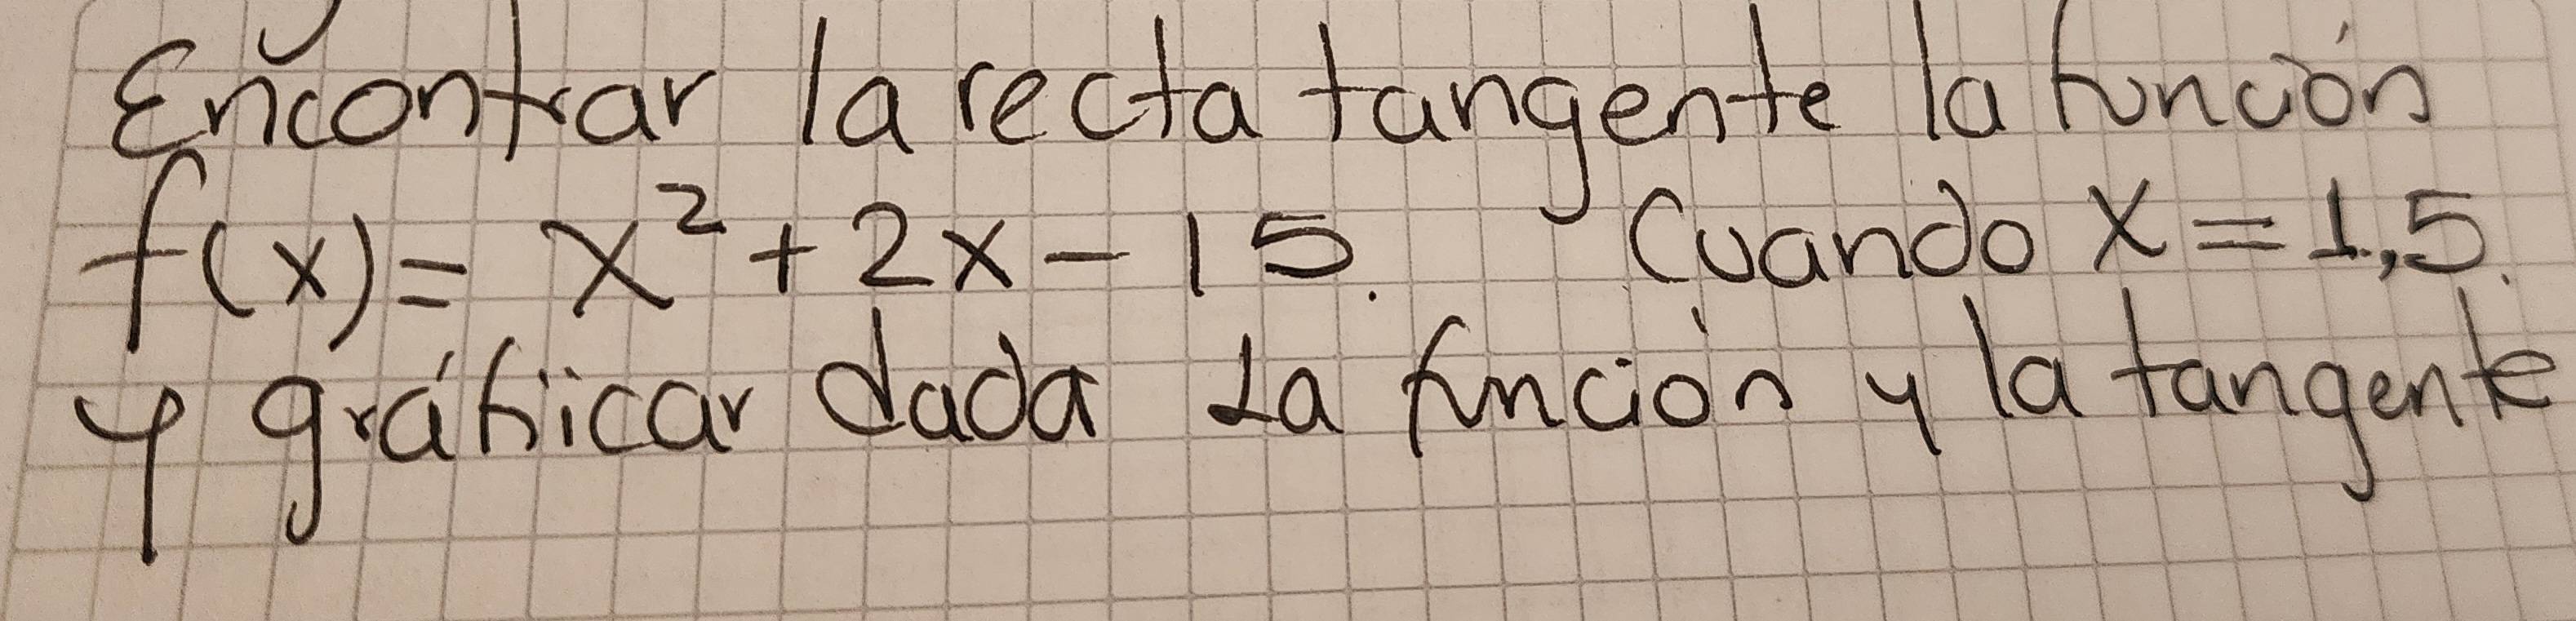 Encontrar la recta tangente la función
f(x) = x² + 2x - 15. Cuando x = 1,5.
y gráficar dada La función y la tangente